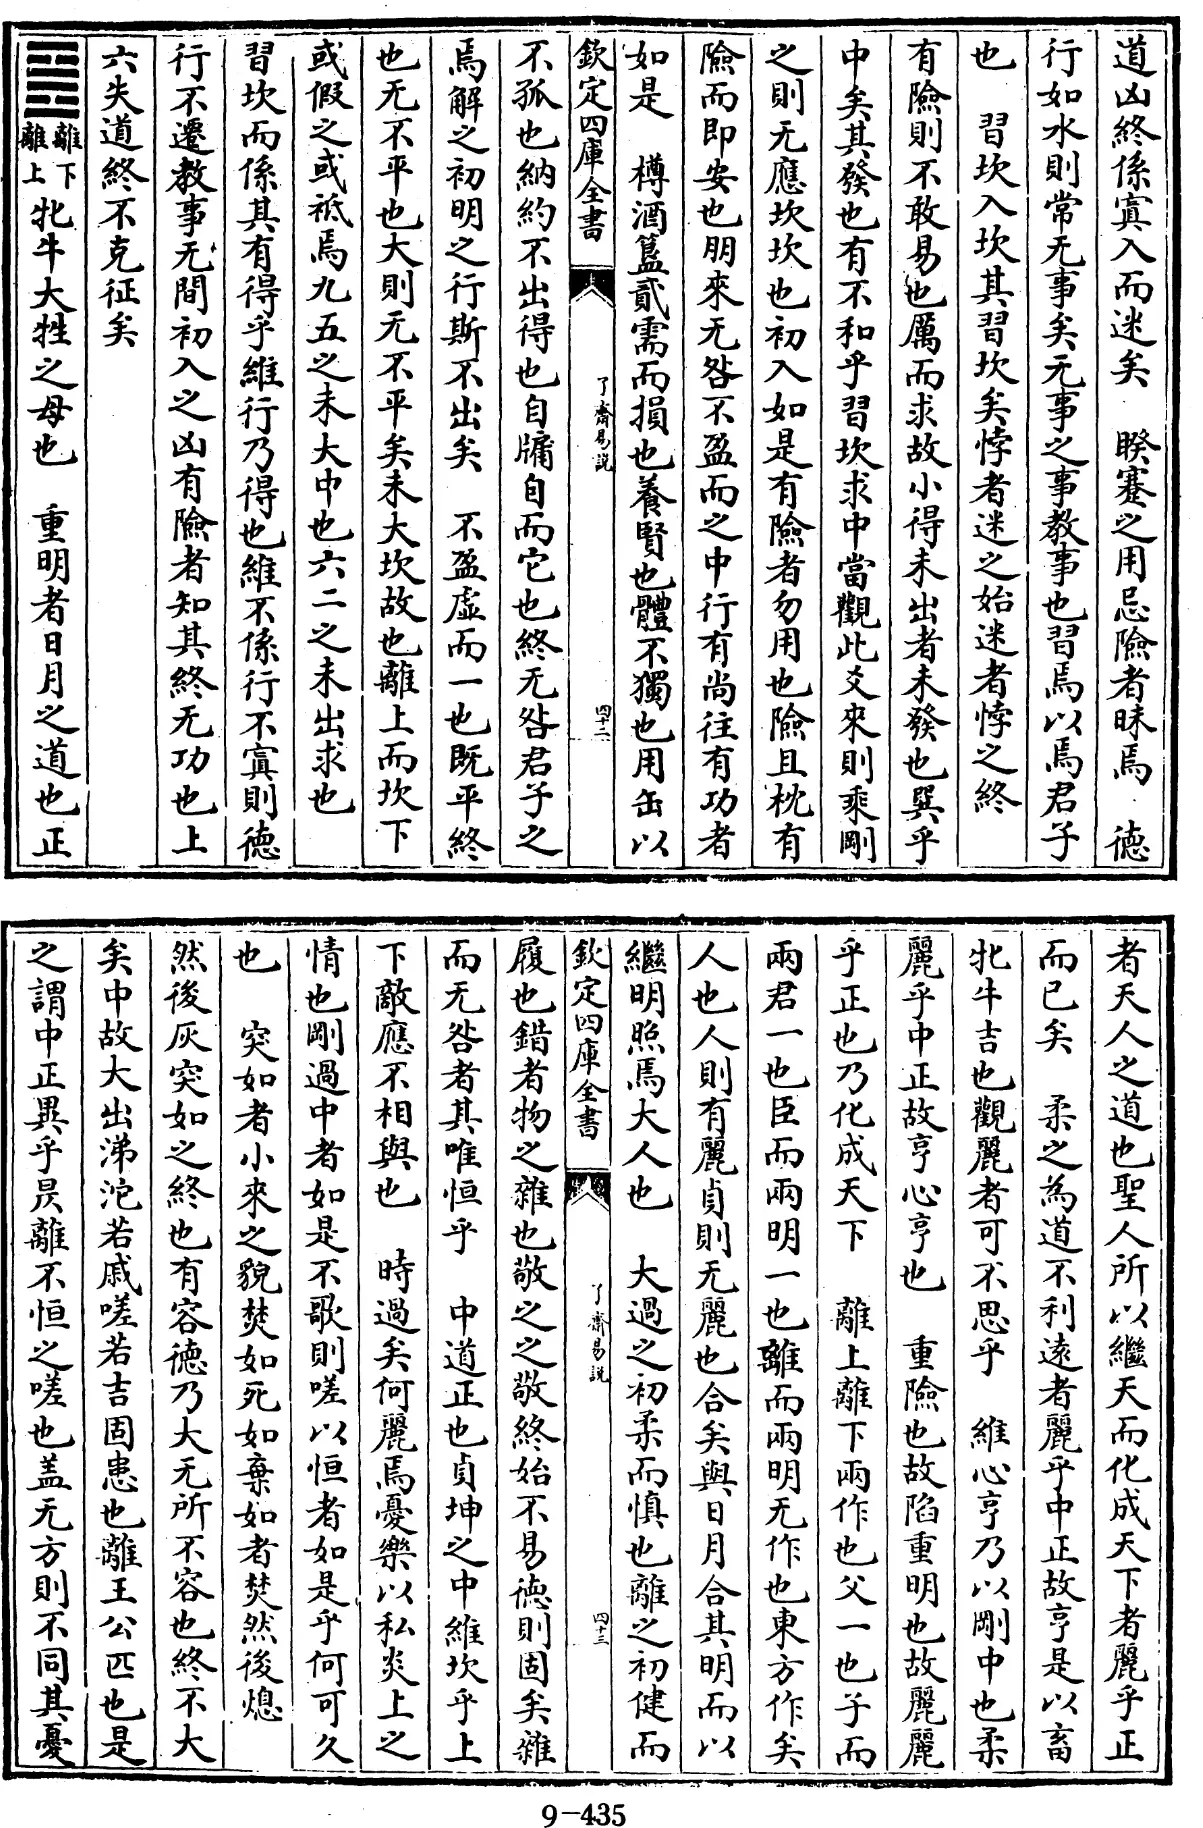 道凶終係寘入而迷矣　睽蹇之用忌險者昧焉　德
行如水則常无事矣无事之事教事也習焉以焉君子
也　習坎入坎其習坎矣悖者迷之始迷者悖之終
有險則不敢易也厲而求故小得未出者未發也巽乎
中矣其發也有不和乎習坎求中當觀此爻來則乘剛
之則无應坎坎也初入如是有險者勿用也險且枕有
險而即安也朋來无咎不盈而之中行有尚往有功者
如是　樽酒簋貳需而損也養賢也體不獨也用缶以
欽定四庫全書　了齋易說　四十二
不孤也納約不出得也自牖自而它也終无咎君子之
焉解之初明之行斯不出矣　不盈虛而一也既平終
也无不平也大則无不平矣未大坎故也離上而坎下
或假之或祗焉九五之未大中也六二之未出求也
習坎而係其有得乎維行乃得也維不係行不寘則德
行不遷教事无間初入之凶有險者知其終无功也上
六失道終不克征矣
離下離上牝牛大牲之母也　重明者日月之道也正
者天人之道也聖人所以繼天而化成天下者麗乎正
而已矣　柔之為道不利遠者麗乎中正故亨是以畜
牝牛吉也觀麗者可不思乎　維心亨乃以剛中也柔
麗乎中正故亨心亨也　重險也故陷重明也故麗麗
乎正也乃化成天下　離上離下兩作也父一也子而
兩君一也臣而兩明一也離而兩明无作也東方作矣
人也人則有麗貞則无麗也合矣與日月合其明而以
繼明照焉大人也　大過之初柔而慎也離之初健而
欽定四庫全書　了齋易說　四十三
履也錯者物之雜也敬之之敬終始不易德則固矣雜
而无咎者其唯恒乎　中道正也貞坤之中維坎乎上
下敵應不相與也　時過矣何麗焉憂樂以私炎上之
情也剛過中者如是不歌則嗟以恒者如是乎何可久
也　突如者小來之貌焚如死如棄如者焚然後熄
然後灰突如之終也有容德乃大无所不容也終不大
矣中故大出涕沱若戚嗟若吉固患也離王公匹也是
之謂中正異乎昃離不恒之嗟也盖无方則不同其憂
9-435